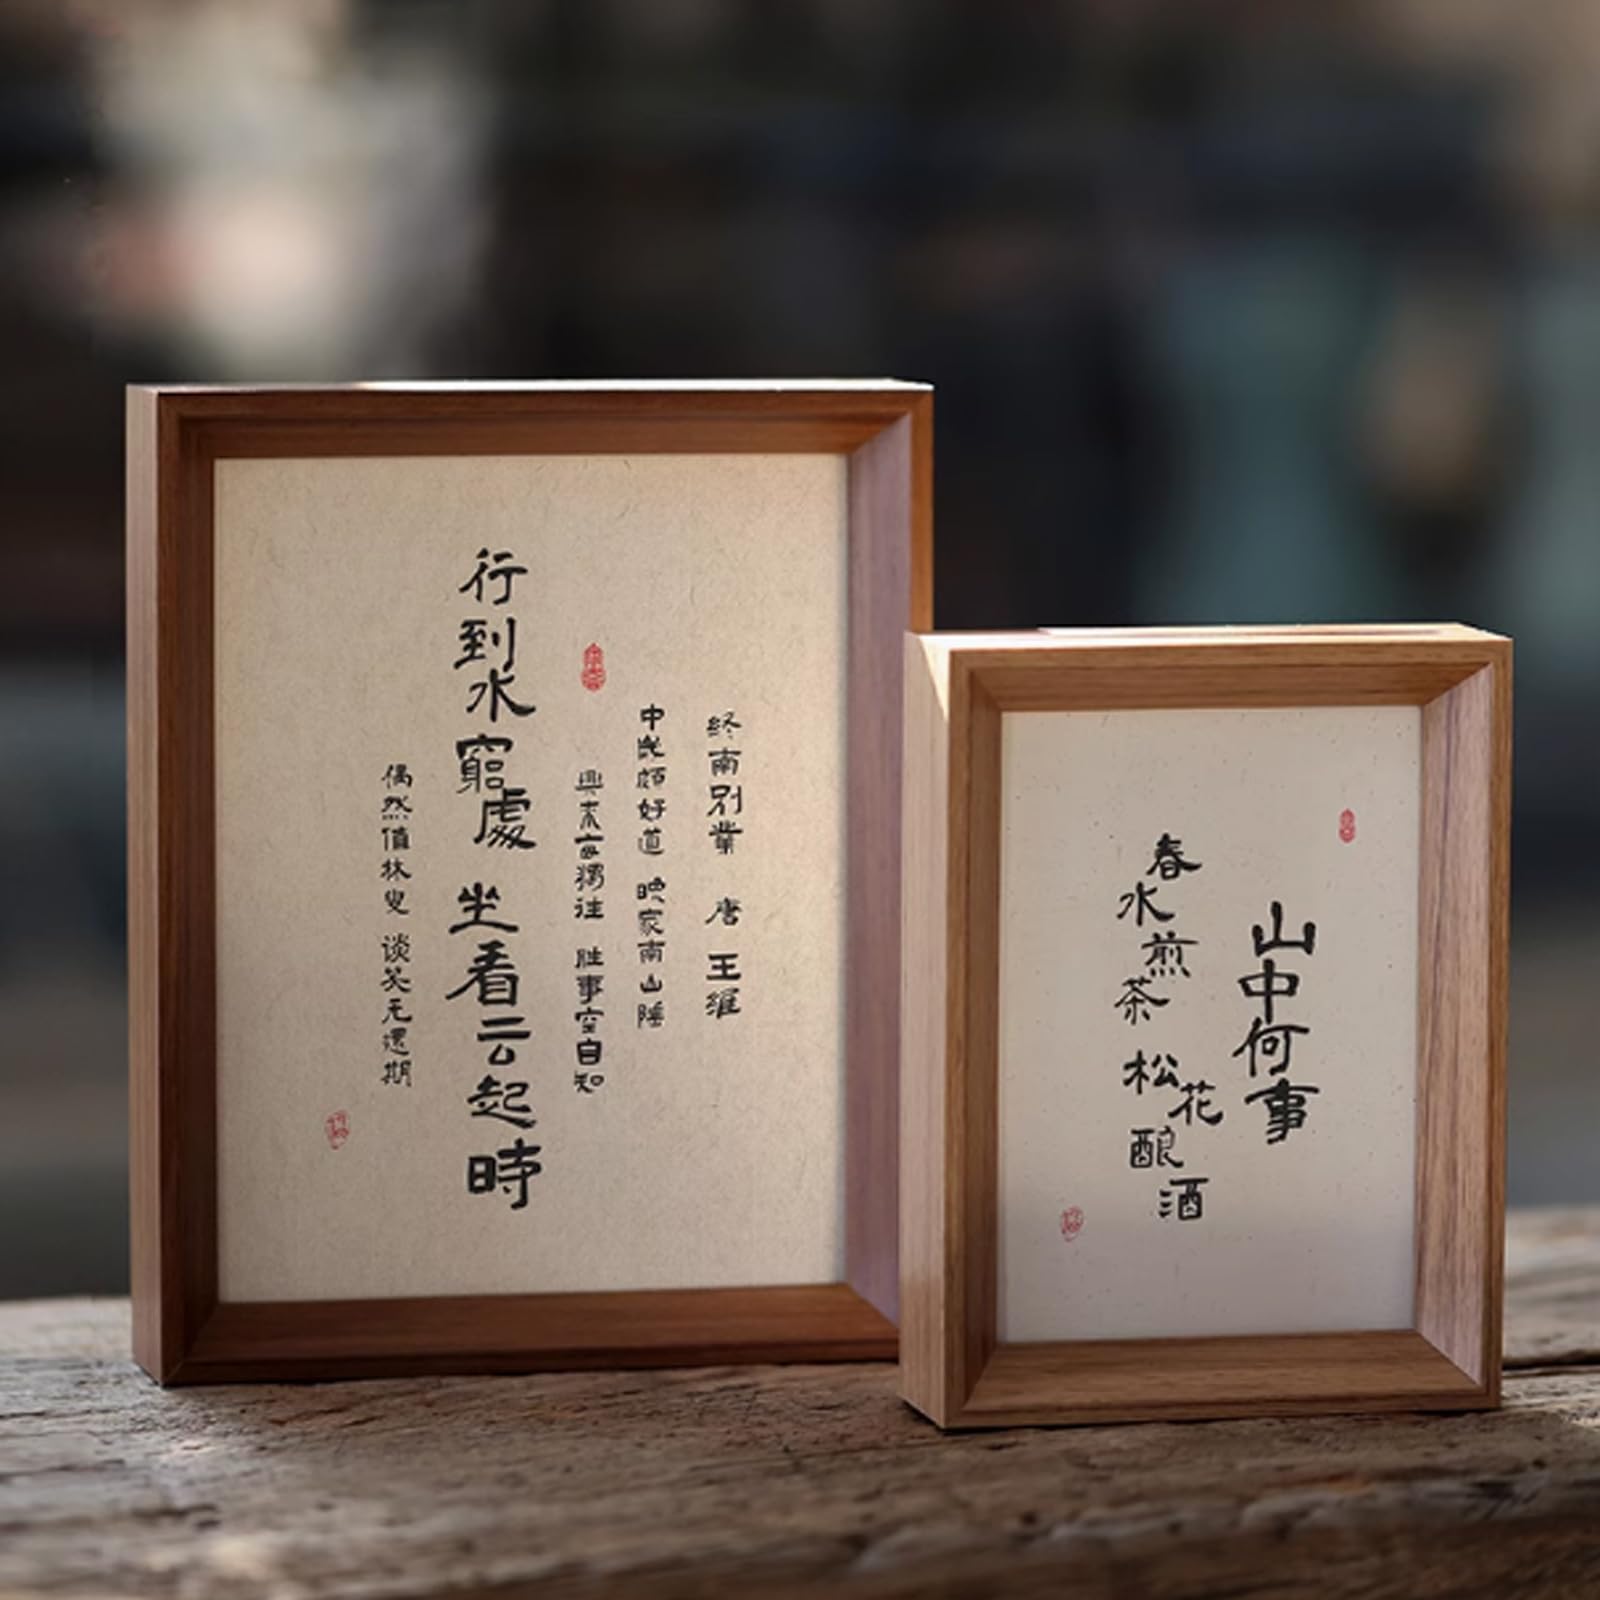 终南别業 唐 王維
中歲頗好道 晚家南山陲
興来每獨往 胜事空自知
行到水窮處 坐看云起時
偶然值林叟 谈笑无還期
山中何事
春水煎茶 松花酿酒